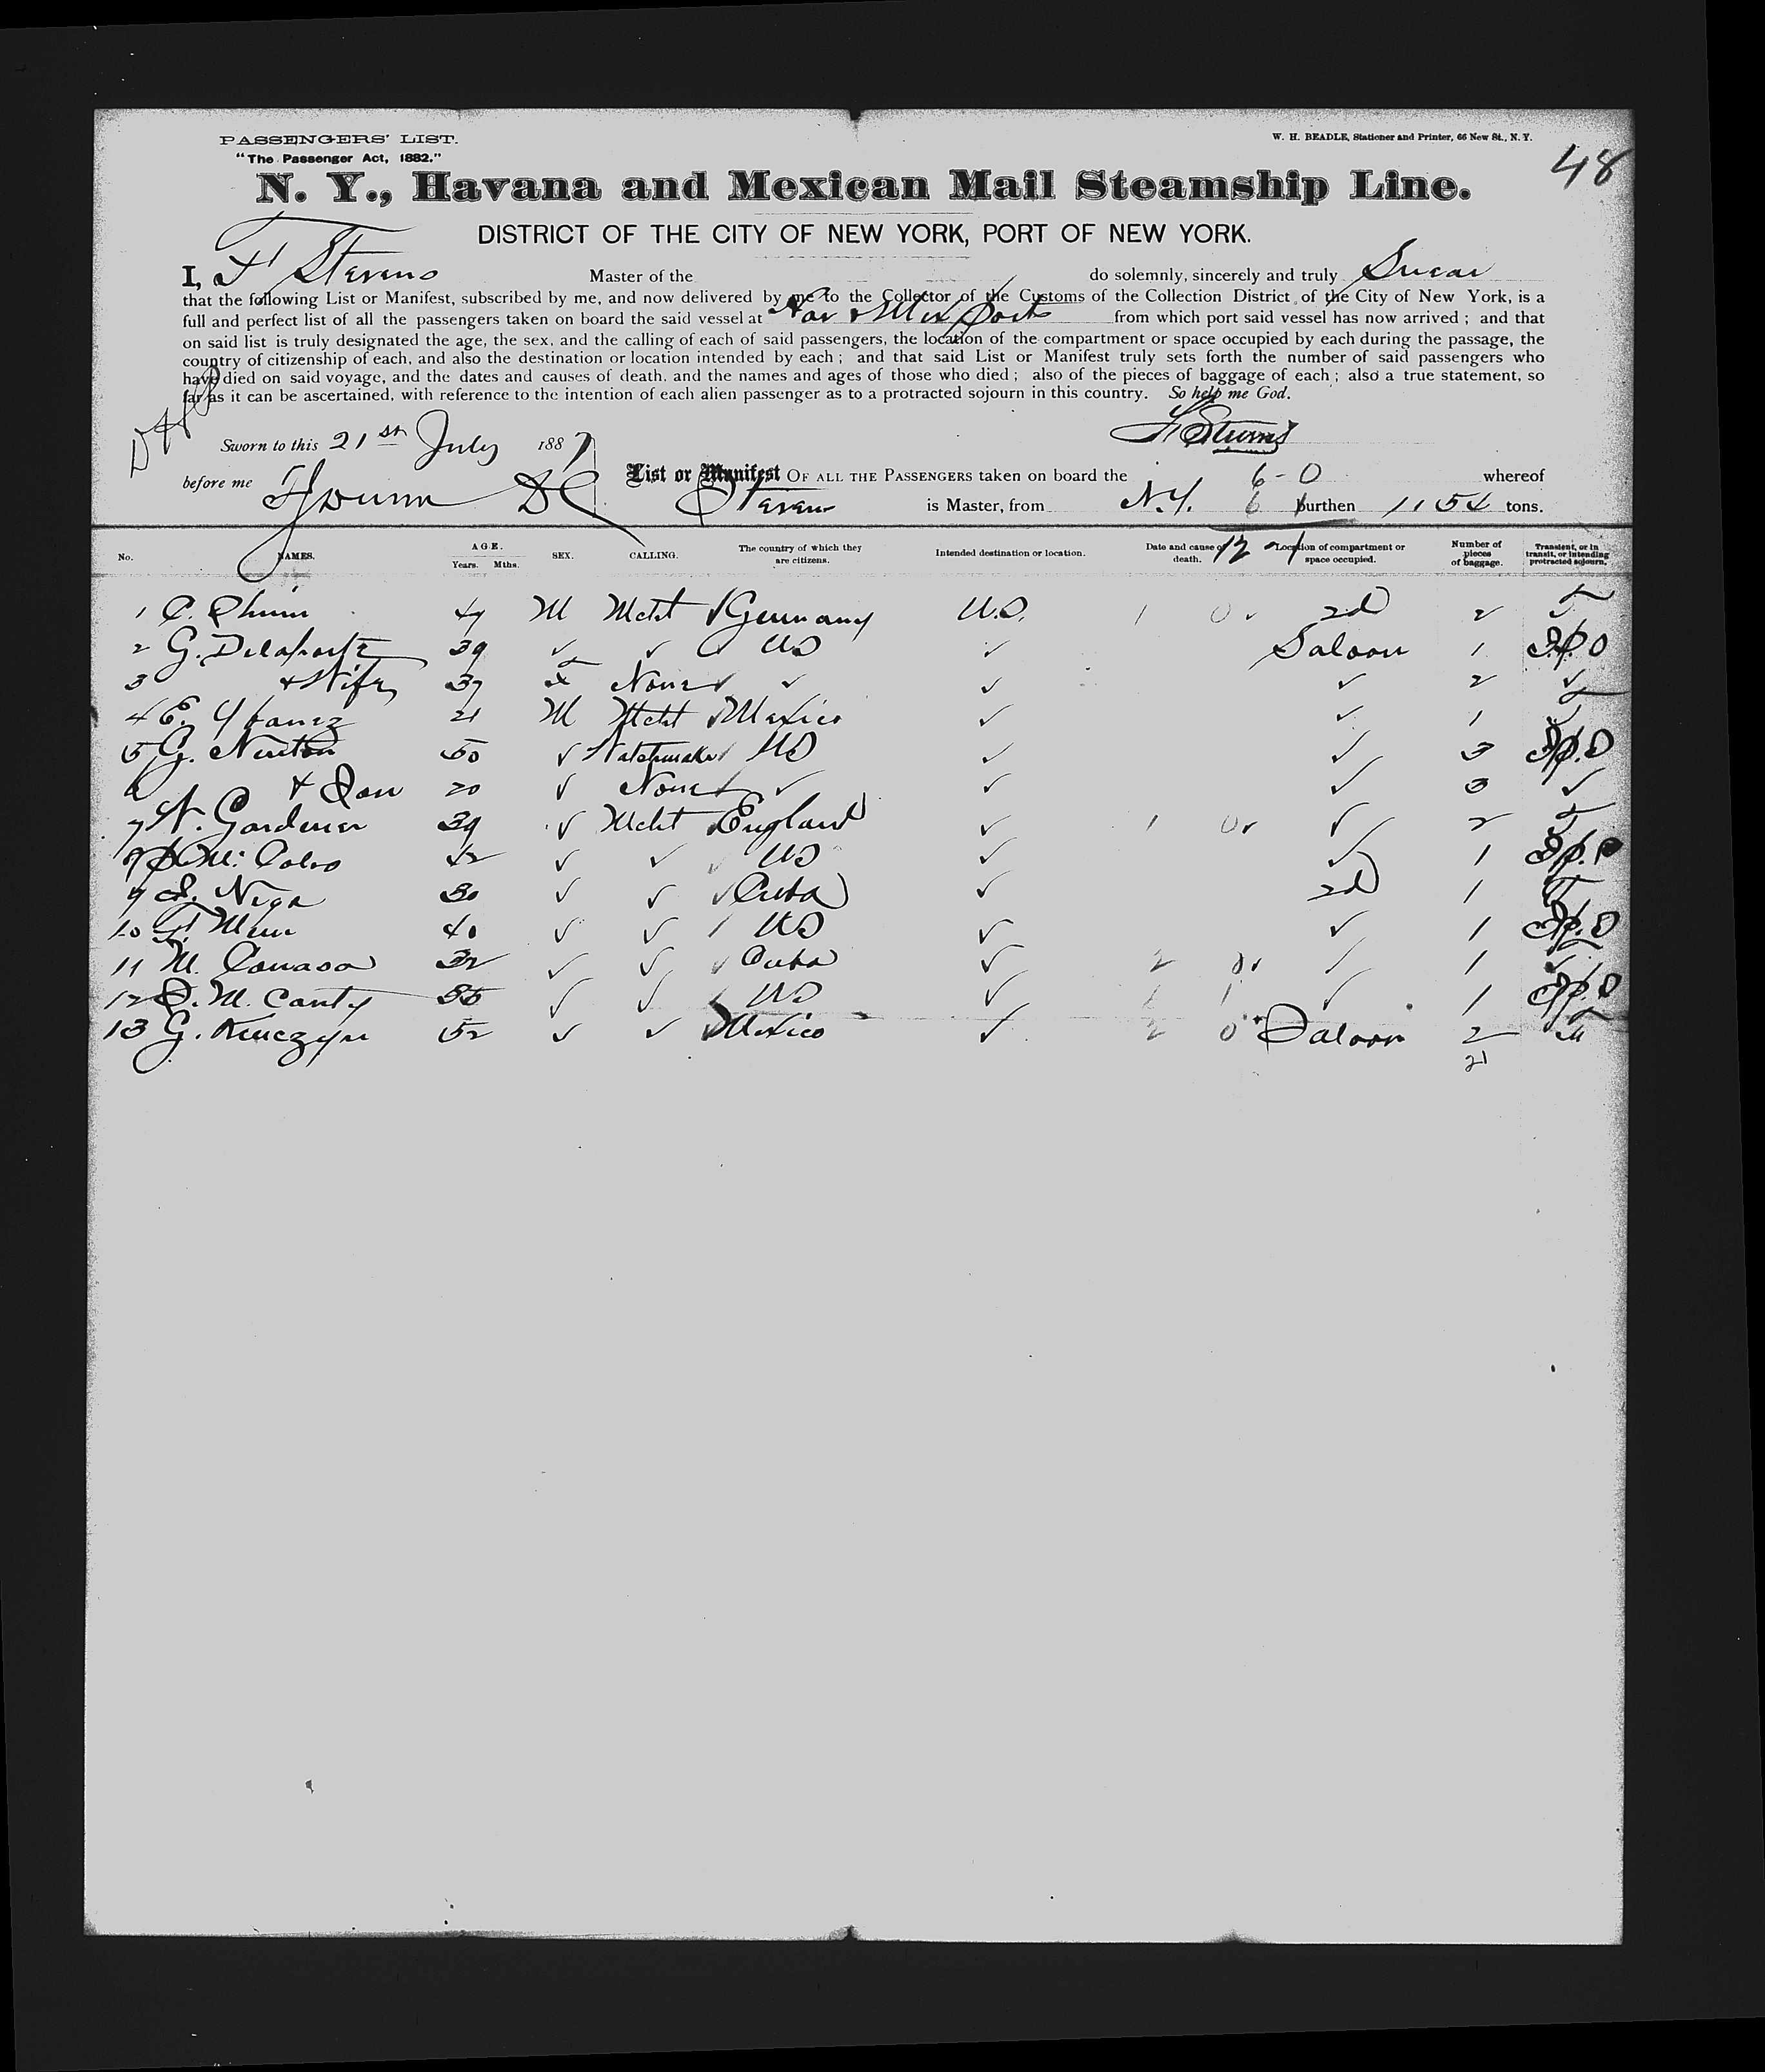 48
PASSENGERS' LIST.
W. H. BEADLE, Stationer and Printer, 66 New St., N. Y.
"The Passenger Act, 1882."
N. Y., Havana and Mexican Mail Steamship Line.
DISTRICT OF THE CITY OF NEW YORK, PORT OF NEW YORK.
I, F Stevens Master of the do solemnly, sincerely and truly Swear
that the following List or Manifest, subscribed by me, and now delivered by me to the Collector of the Customs of the Collection District of the City of New York, is a
full and perfect list of all the passengers taken on board the said vessel at Hav & Mex Ports from which port said vessel has now arrived ; and that
on said list is truly designated the age, the sex, and the calling of each of said passengers, the location of the compartment or space occupied by each during the passage, the
country of citizenship of each, and also the destination or location intended by each ; and that said List or Manifest truly sets forth the number of said passengers who
have died on said voyage, and the dates and causes of death, and the names and ages of those who died ; also of the pieces of baggage of each ; also a true statement, so
far as it can be ascertained, with reference to the intention of each alien passenger as to a protracted sojourn in this country. So help me God.
F Stevens
Sworn to this 21st July 1887
before me List or Manifest OF ALL THE PASSENGERS taken on board the 6-0 whereof
Stevens is Master, from N.Y. 6 1 burthen 1154 tons.
12-1
No. NAMES. AGE. Years. Mths. SEX. CALLING. The country of which they are citizens. Intended destination or location. Date and cause of death. Location of compartment or space occupied. Number of pieces of baggage. Transient, or in transit, or intending protracted sojourn.
1 M Mcht Germany U.S. 2d 2 T
2 G. Delaporte 39 ✓ ✓ US ✓ Saloon 1
3 & Wife 37 None ✓ ✓ ✓ 2 ✓
4 E. Ybanez 21 M Mcht Mexico ✓ ✓ 1
5 G. Newton 50 ✓ Watchmaker US ✓ ✓ 3
6 & Son 20 ✓ None ✓ ✓ ✓ 3 ✓
7 Gardener 39 ✓ Mcht England ✓ ✓ 2 T
8 42 ✓ ✓ US ✓ ✓ 1
9 30 ✓ ✓ Cuba ✓ 2d 1 T
10 40 ✓ ✓ US ✓ ✓ 1
11 M. 32 ✓ ✓ Cuba ✓ ✓ 1
12 M. Canty ✓ ✓ US ✓ ✓ 1
13 G. 52 ✓ ✓ Mexico ✓ Saloon 2
21